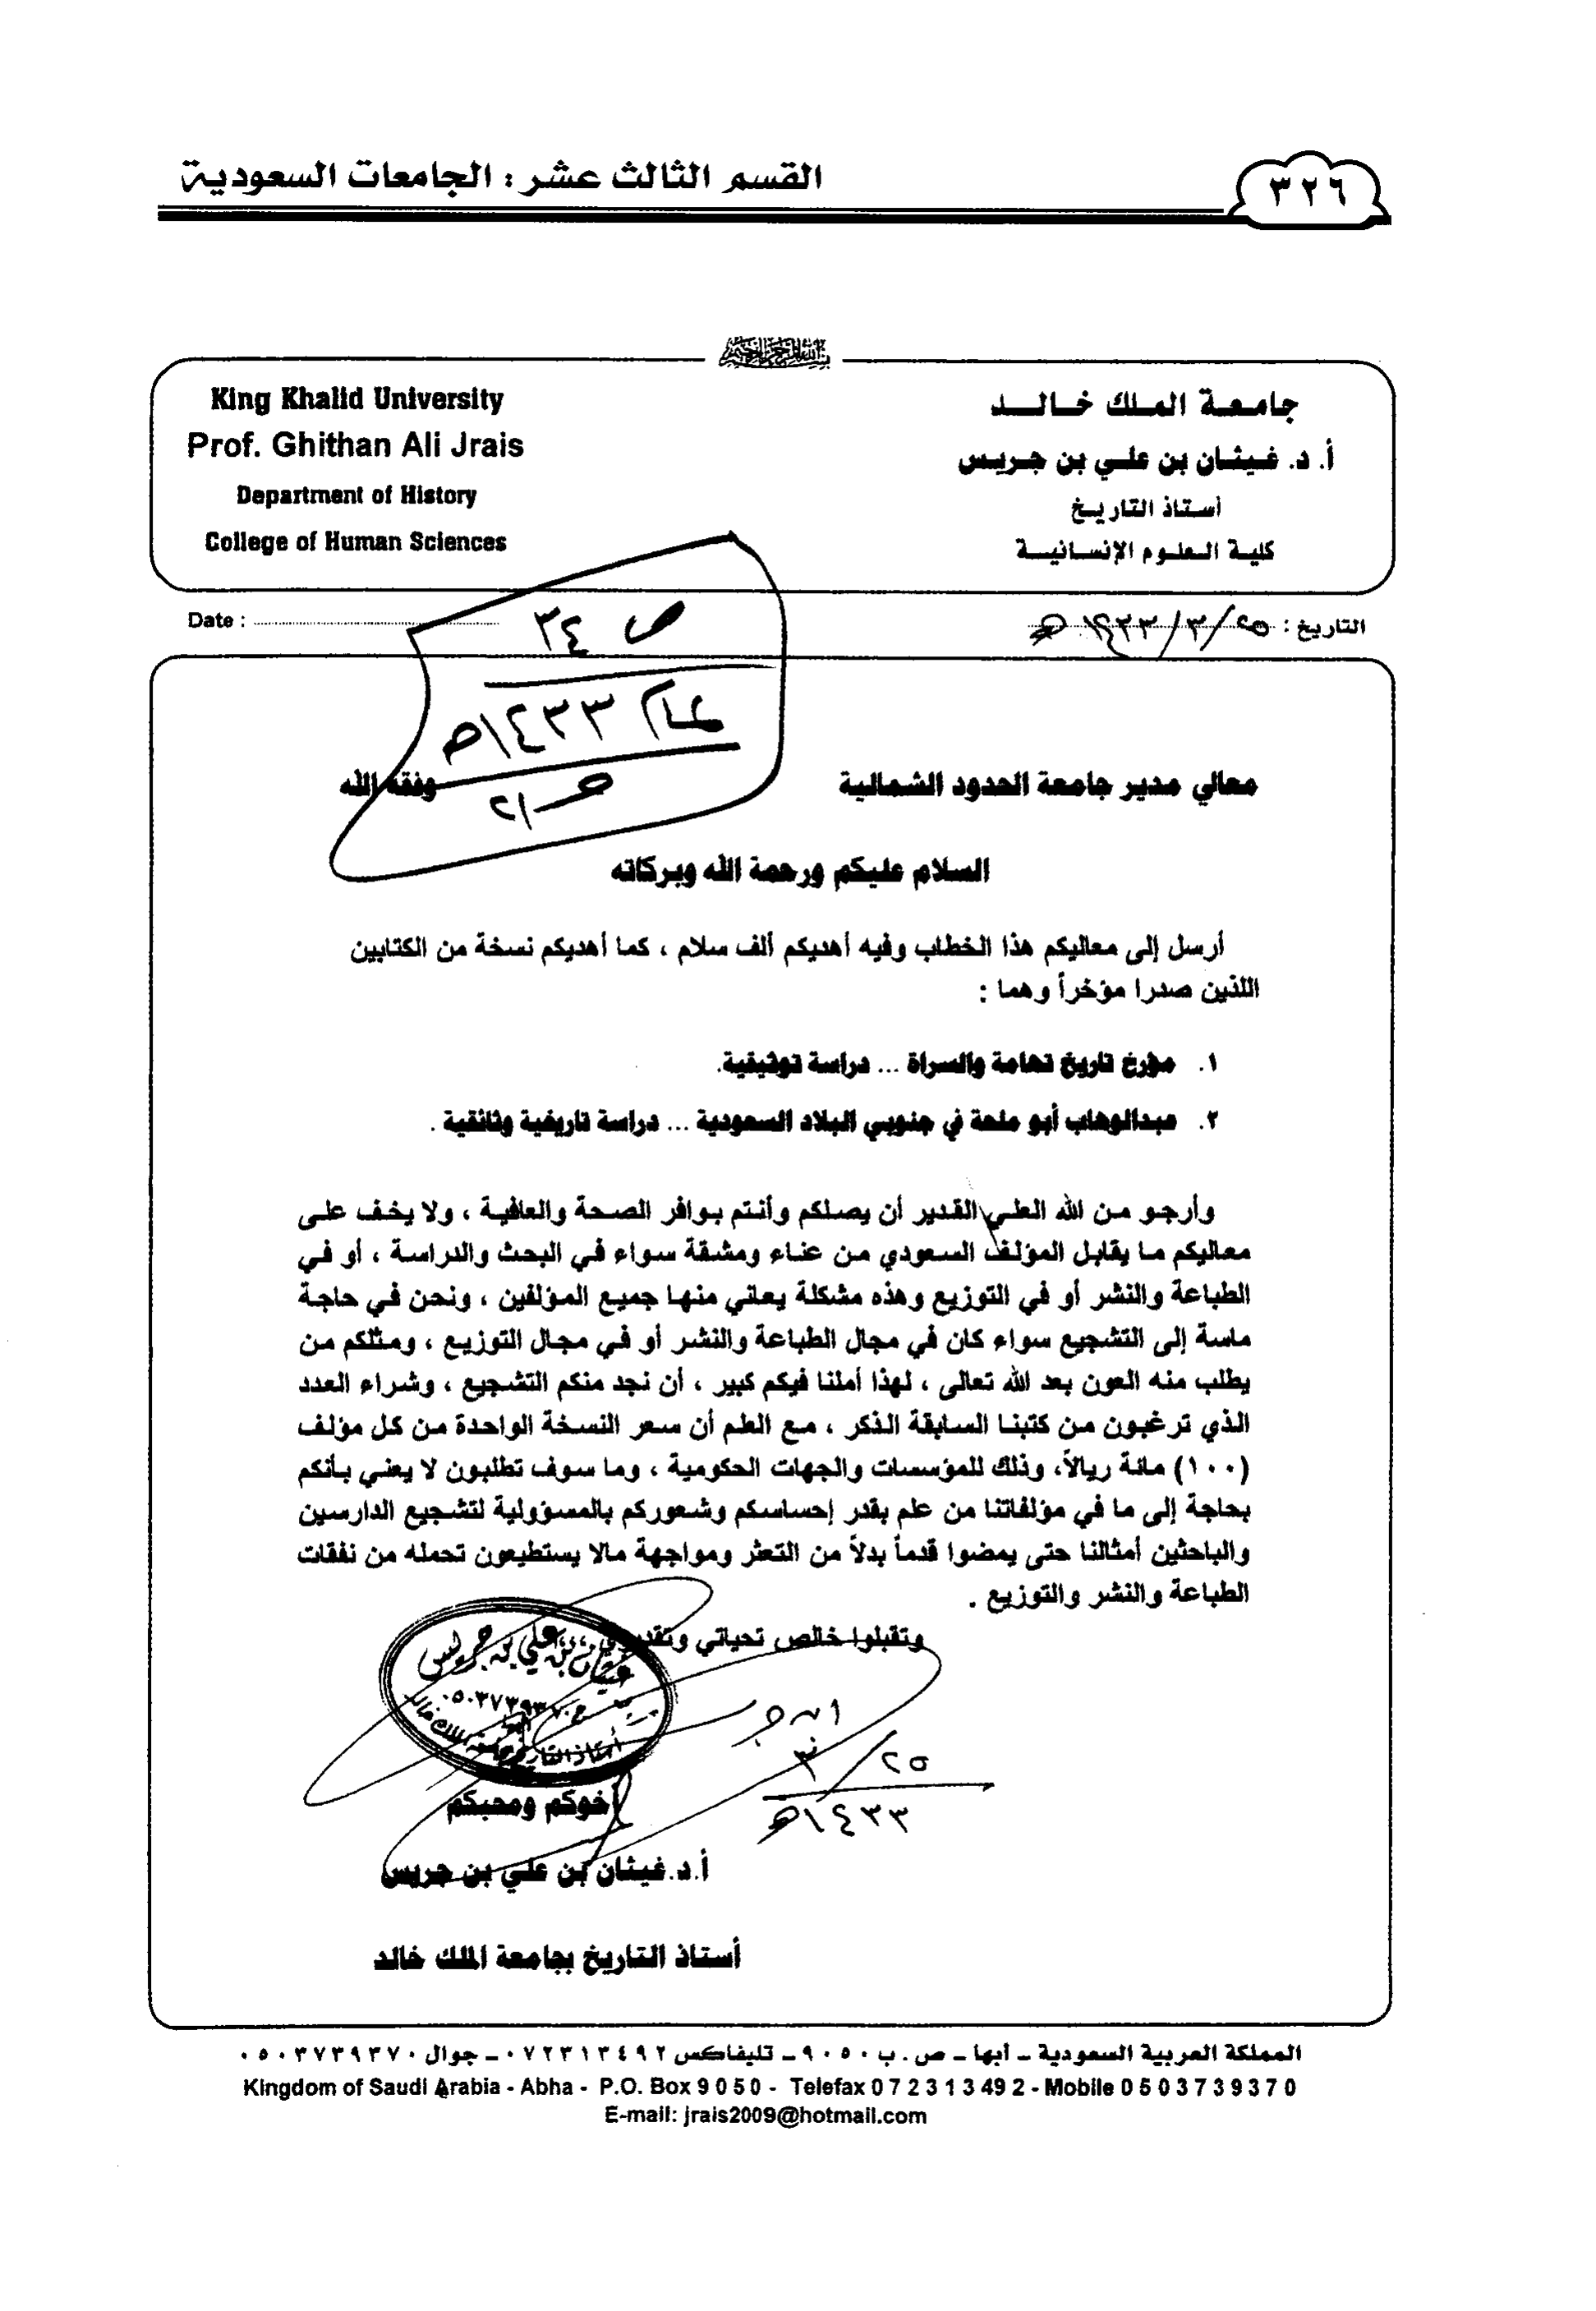 القسم الثالث عشر : الجامعات السعودية
٣٢٦
بسم الله الرحمن الرحيم
جامعة الملك خالد
أ. د. غيثان بن علي بن جريس
أستاذ التاريخ
كلية العلوم الإنسانية
King Khalid University
Prof. Ghithan Ali Jrais
Department of History
College of Human Sciences
التاريخ : ٢٥/٣/١٤٣٣هـ
Date :
ص ٣٤
عام ١٤٣٣هـ
معالي مدير جامعة الحدود الشمالية
وفقه الله
السلام عليكم ورحمة الله وبركاته
أرسل إلى معاليكم هذا الخطاب وفيه أهديكم ألف سلام ، كما أهديكم نسخة من الكتابين
اللذين صدرا مؤخراً وهما :
١. مؤرخ تاريخ تهامة والسراة ... دراسة توثيقية.
٢. عبدالوهاب أبو ملحة في جنوبي البلاد السعودية ... دراسة تاريخية وثائقية .
وأرجو من الله العلي القدير أن يصلكم وأنتم بوافر الصحة والعافية ، ولا يخف على
معاليكم ما يقابل المؤلف السعودي من عناء ومشقة سواء في البحث والدراسة ، أو في
الطباعة والنشر أو في التوزيع وهذه مشكلة يعاني منها جميع المؤلفين ، ونحن في حاجة
ماسة إلى التشجيع سواء كان في مجال الطباعة والنشر أو في مجال التوزيع ، ومثلكم من
يطلب منه العون بعد الله تعالى ، لهذا أملنا فيكم كبير ، أن نجد منكم التشجيع ، وشراء العدد
الذي ترغبون من كتبنا السابقة الذكر ، مع العلم أن سعر النسخة الواحدة من كل مؤلف
(١٠٠) مائة ريالاً، وذلك للمؤسسات والجهات الحكومية ، وما سوف تطلبون لا يعني بأنكم
بحاجة إلى ما في مؤلفاتنا من علم بقدر إحساسكم وشعوركم بالمسؤولية لتشجيع الدارسين
والباحثين أمثالنا حتى يمضوا قدماً بدلاً من التعثر ومواجهة مالا يستطيعون تحمله من نفقات
الطباعة والنشر والتوزيع .
وتقبلوا خالص تحياتي وتقديري ،،،
غيثان بن علي بن جريس
٠٥٠٣٧٣٩٣٧٠
٢٥/٣
١٤٣٣هـ
أخوكم ومحبكم
أ.د. غيثان بن علي بن جريس
أستاذ التاريخ بجامعة الملك خالد
المملكة العربية السعودية ــ أبها ــ ص . ب ٩٠٥٠ ــ تليفاكس ٠٧٢٣١٣٤٩٢ ــ جوال ٠٥٠٣٧٣٩٣٧٠
Kingdom of Saudi Arabia - Abha - P.O. Box 9 0 5 0 - Telefax 0 7 2 3 1 3 49 2 - Mobile 0 5 0 3 7 3 9 3 7 0
E-mail: jrais2009@hotmail.com